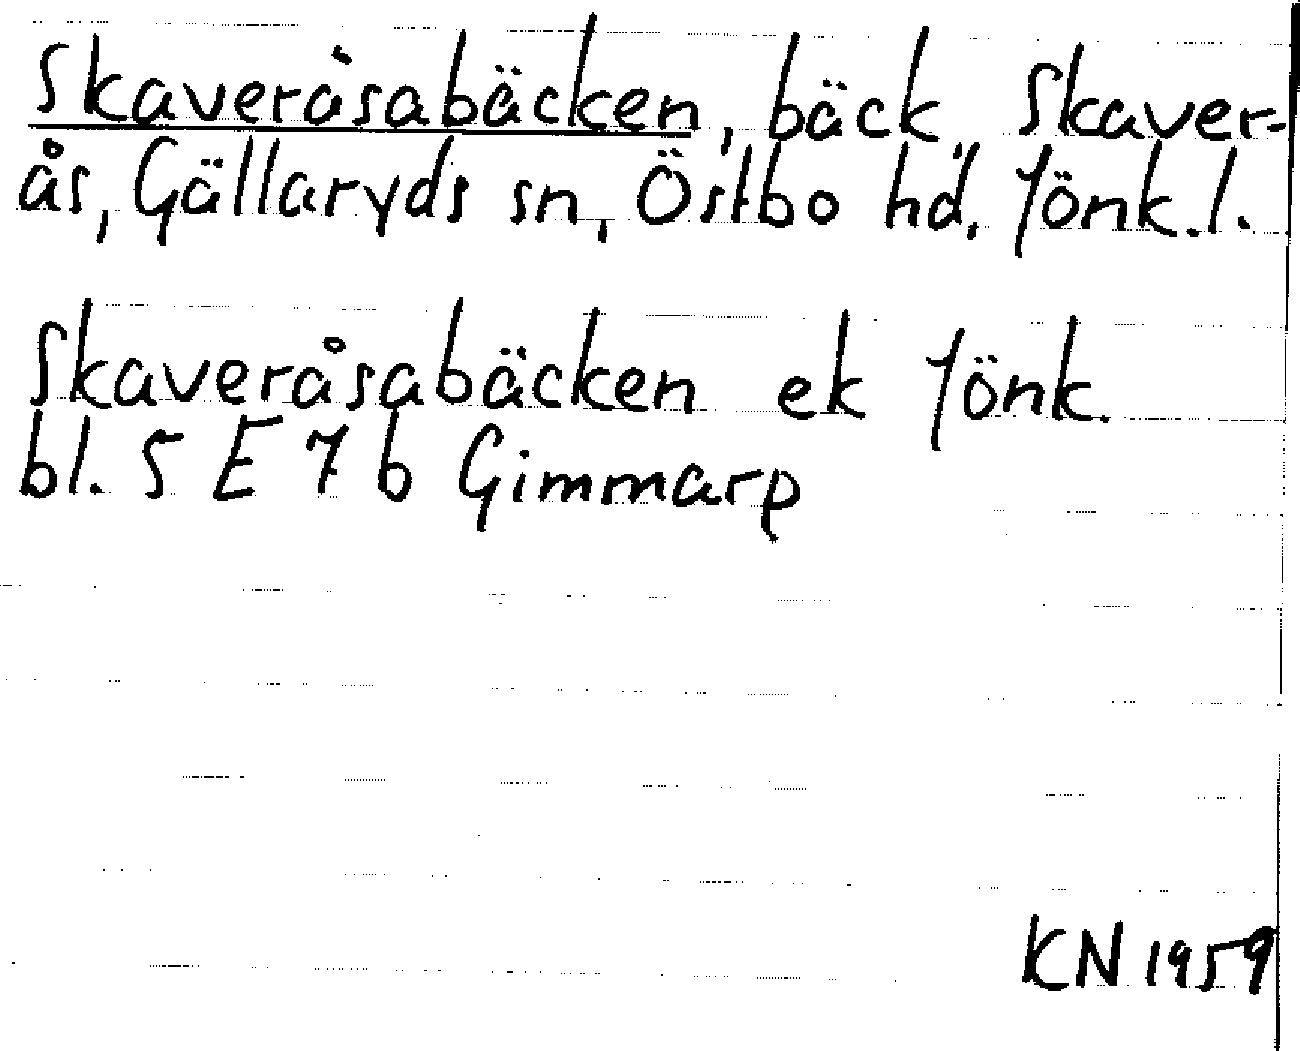 Skaveråsabäcken, bäck, Skaver-
ås, Gällaryds sn, Östbo hd, Jönk.l.
Skaveråsabäcken ek Jönk.
bl. 5 E 7 b Gimmarp
KN 1959